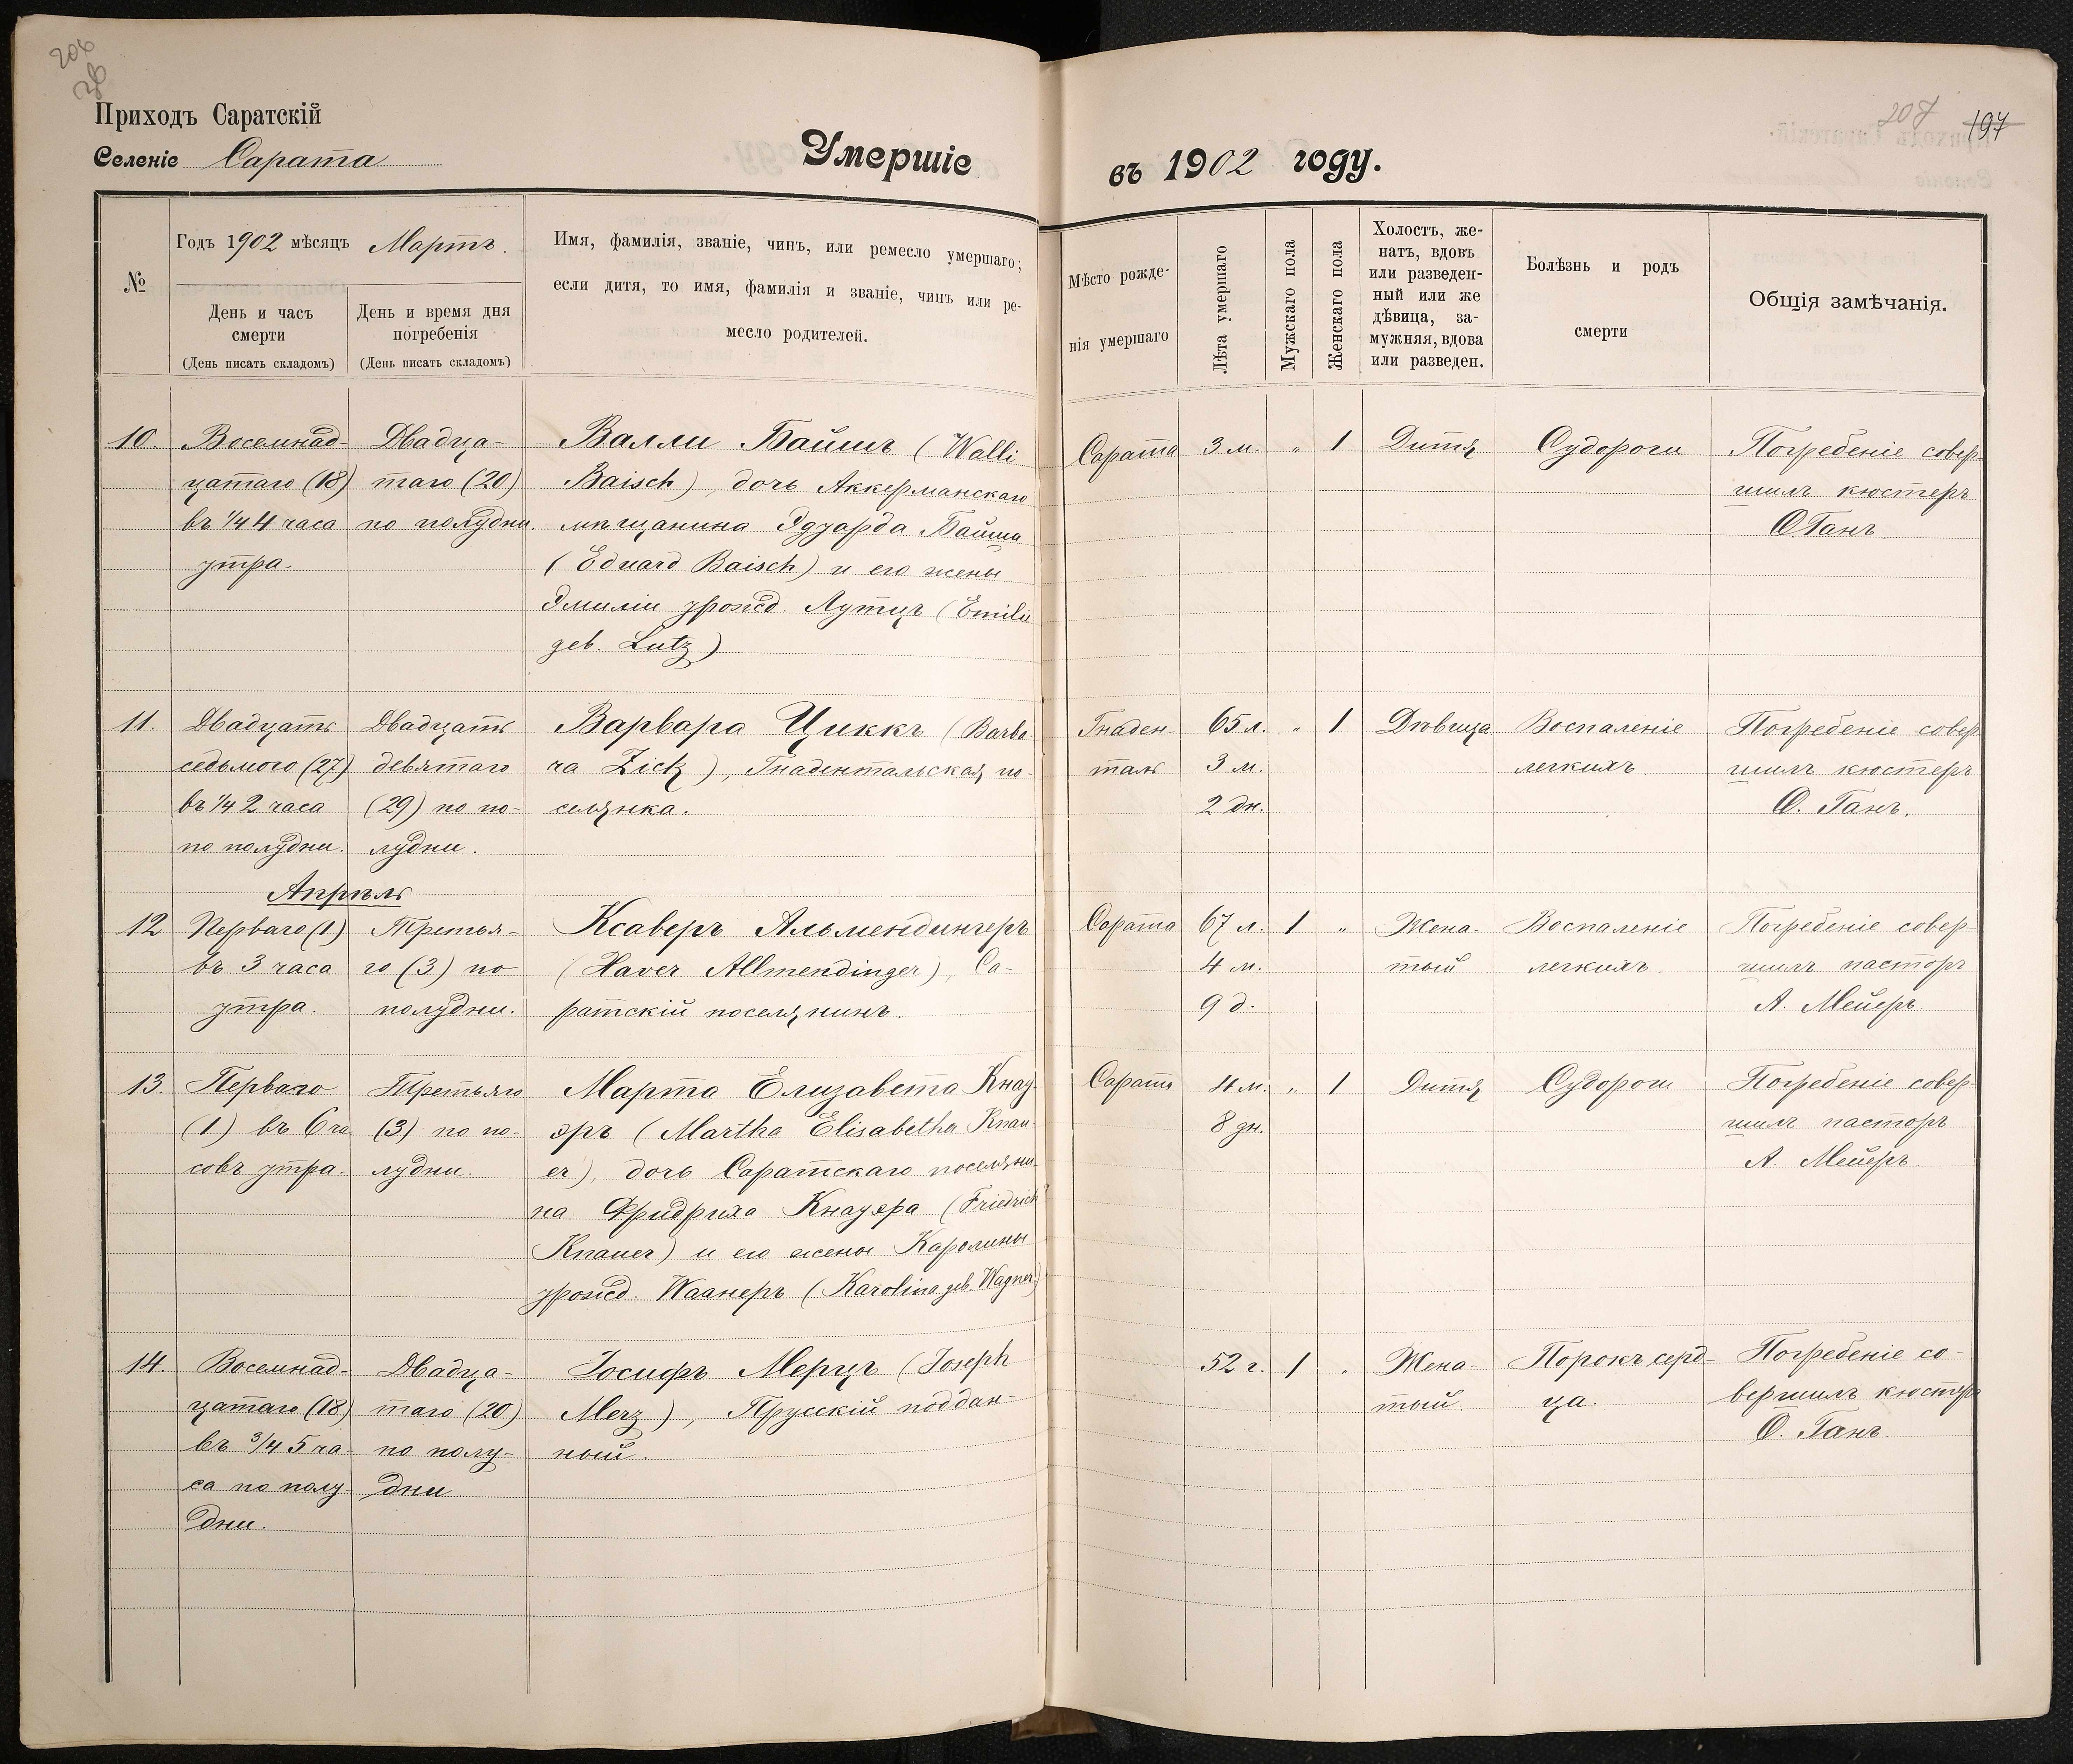 206
Приходъ Саратскій
Селеніе Сарата
Умершіе
въ 1902 году.
207 197
№
Годъ 1902 мѣсяцъ Мартъ.
День и часъ
смерти
(День писать складомъ)
День и время дня
погребенія
(День писать складомъ)
Имя, фамилія, званіе, чинъ, или ремесло умершаго;
если дитя, то имя, фамилія и званіе, чинъ или ре-
месло родителей.
Мѣсто рожде-
нія умершаго
Лѣта умершаго
Мужскаго пола
Женскаго пола
Холостъ, же-
натъ, вдовъ
или разведен-
ный или же
дѣвица, за-
мужняя, вдова
или разведен.
Болѣзнь и родъ
смерти
Общія замѣчанія.
10.
Восемнад-
цатаго (18)
въ 1/4 4 часа
утра.
Двадца-
таго (20)
по полудни.
Валли Байшъ (Walli
Baisch), дочь Аккерманскаго
мѣщанина Эдуарда Байша
(Eduard Baisch) и его жены
Эмиліи урожд. Лутцъ (Emilie
geb. Lutz)
Сарата
3 м.
"
1
Дитя
Судороги
Погребеніе совер-
шилъ кюстеръ
О. Ганъ.
11.
Двадцать
седьмого (27)
въ 1/4 2 часа
по полудни.
Двадцать
девятаго
(29) по по-
лудни.
Варвара Циккъ (Barba-
ra Zick), Гнадентальская по-
селянка.
Гнаден-
таль
65 л.
3 м.
2 дн.
"
1
Дѣвица
Воспаленіе
легкихъ.
Погребеніе совер-
шилъ кюстеръ
О. Ганъ.
Апрѣль
12
Перваго (1)
въ 3 часа
утра.
Третья-
го (3) по
полудни.
Ксаверъ Альмендингеръ
(Xaver Allmendinger), Са-
ратскій поселянинъ.
Сарата
67 л.
4 м.
9 д.
1
"
Жена-
тый
Воспаленіе
легкихъ.
Погребеніе совер-
шилъ пасторъ
А. Мейеръ.
13.
Перваго
(1) въ 6 ча
совъ утра.
Третьяго
(3) по по-
лудни.
Марта Елизавета Кнау-
эръ (Martha Elisabetha Knau-
er), дочь Саратскаго поселяни-
на Фридриха Кнауэра (Friedrich
Knauer) и его жены Каролины
урожд. Вагнеръ (Karolina geb. Wagner)
Сарата
4 м.
8 дн.
"
1
Дитя
Судороги
Погребеніе совер-
шилъ пасторъ
А. Мейеръ.
14.
Восемнад-
цатаго (18)
въ 3/4 5 ча-
са по полу-
дни.
Двадца-
таго (20)
по полу-
дни
Іосифъ Мерцъ (Joseph
Merz), Прусскій поддан-
ный.
52 г.
1
"
Жена-
тый.
Порокъ серд-
ца.
Погребеніе со-
вершилъ кюстеръ
О. Ганъ.